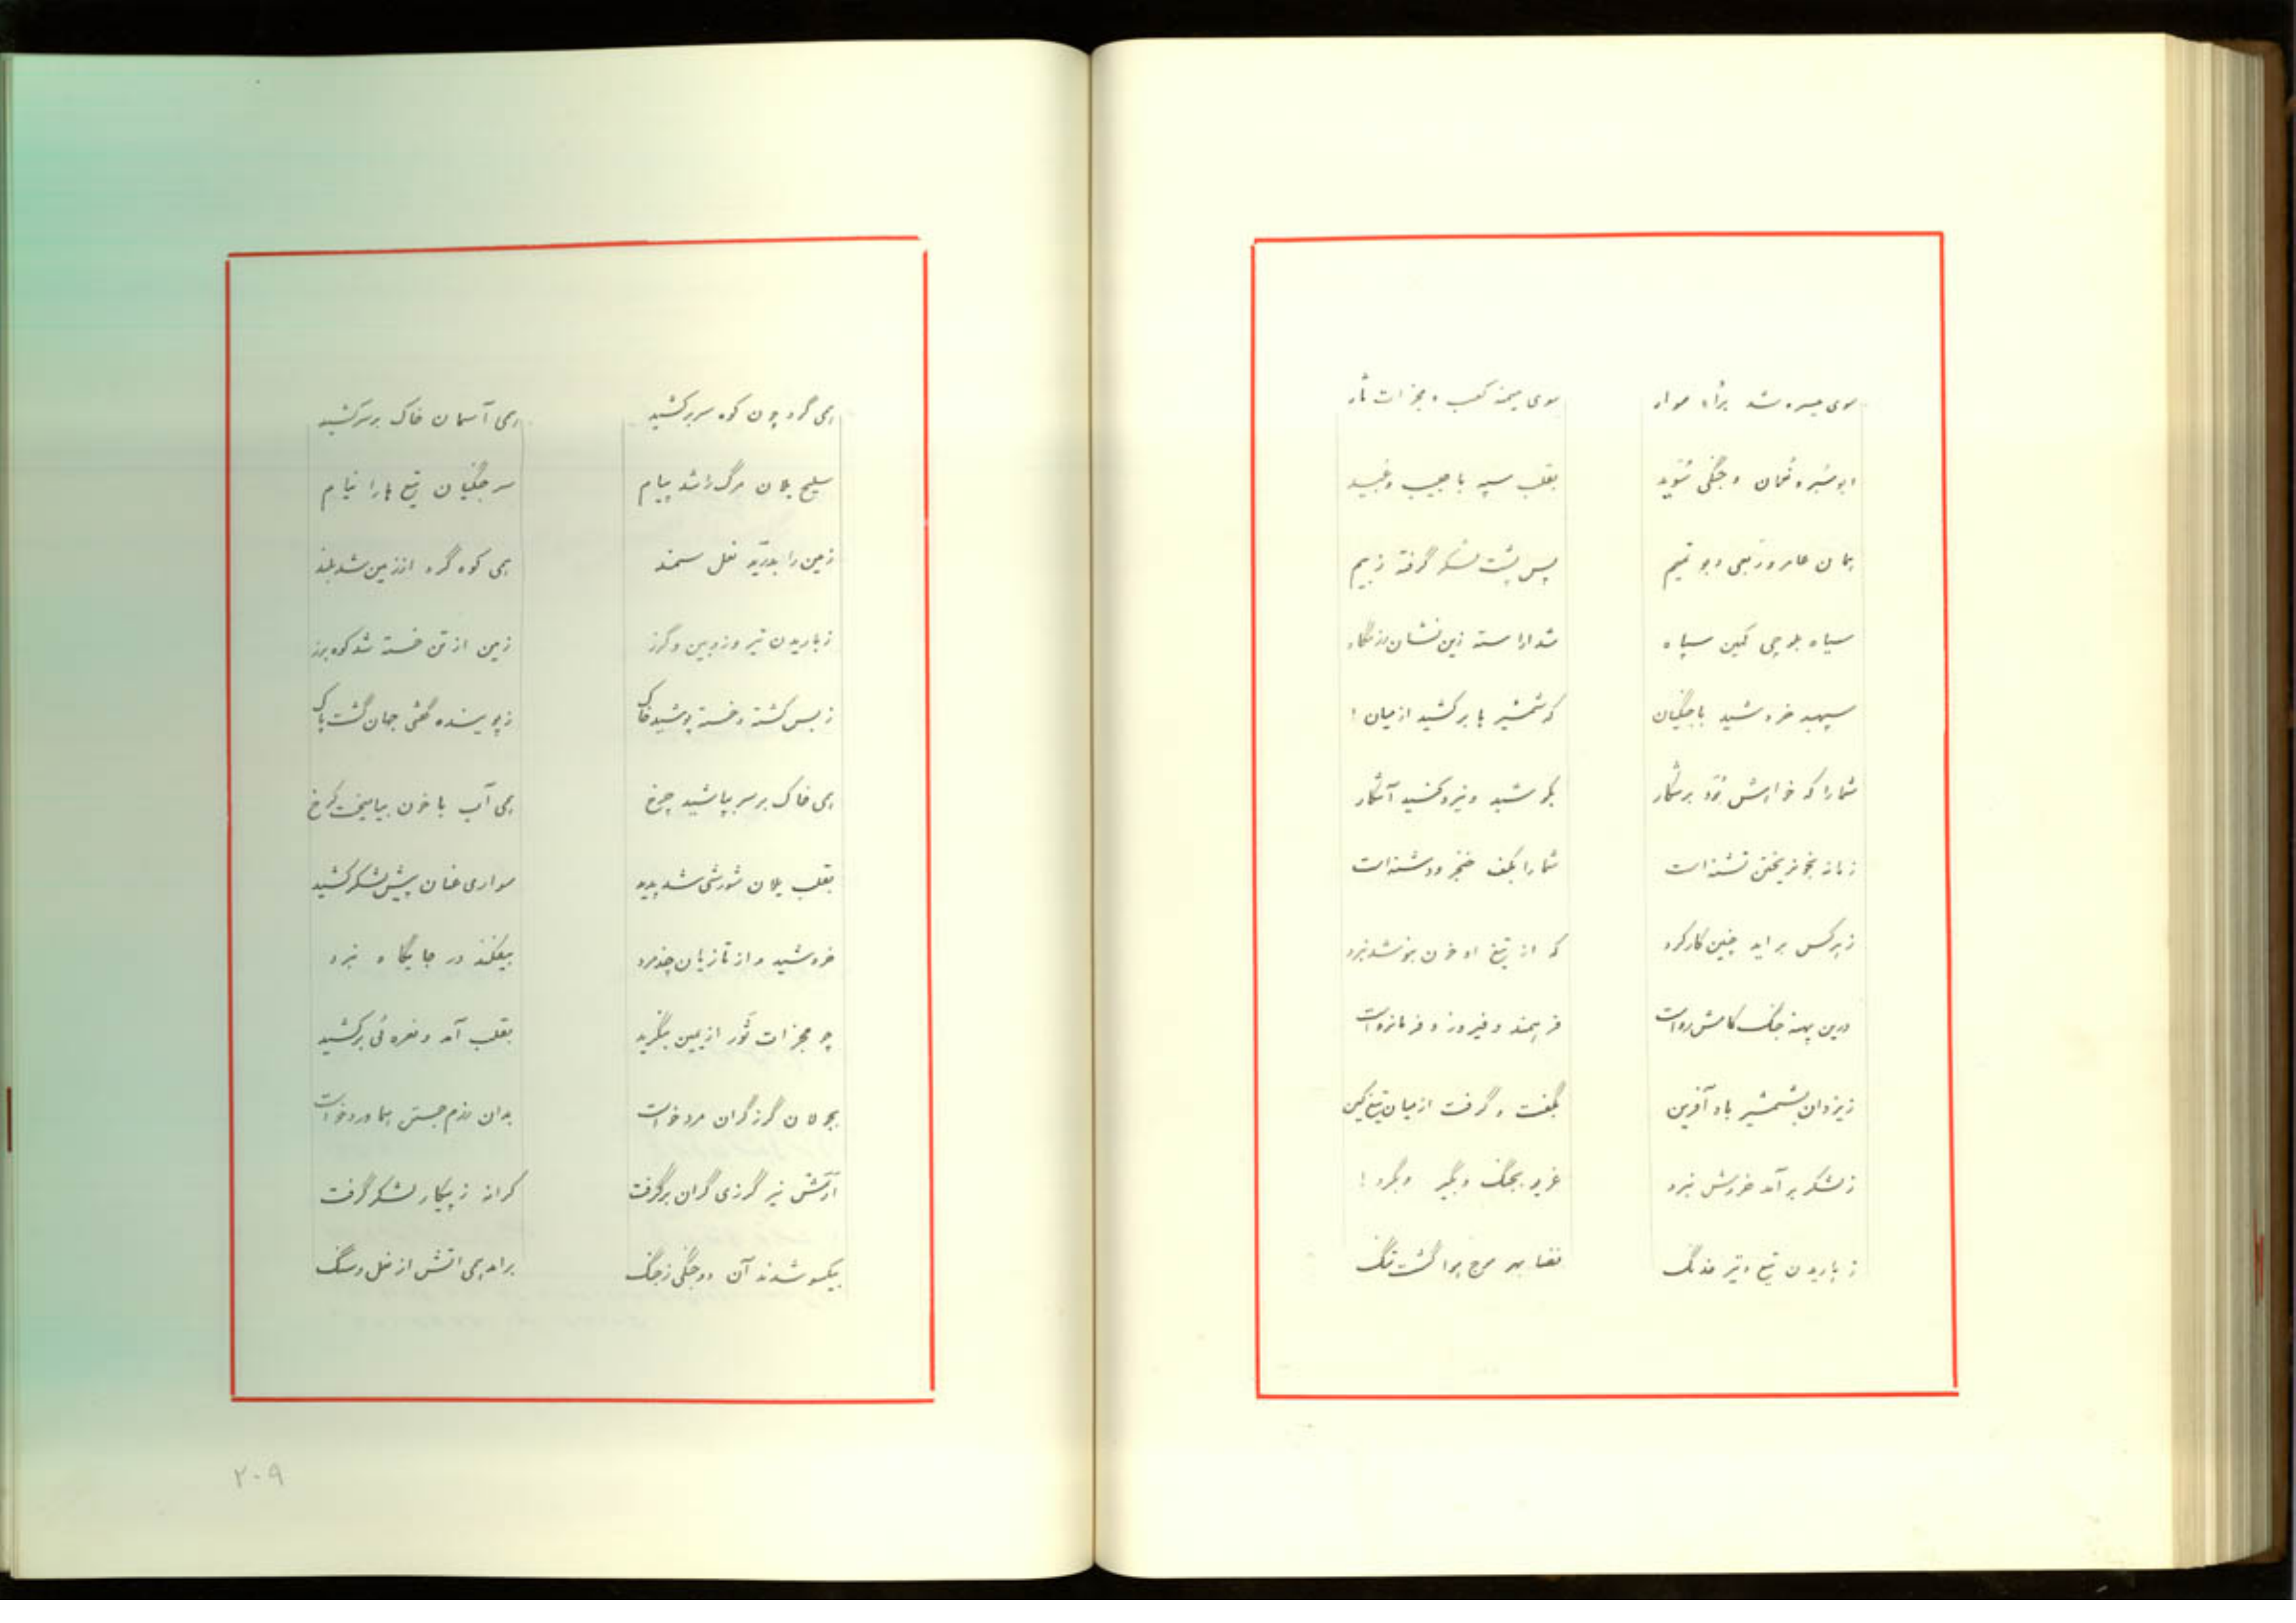 سوی میسره شد براه سوار سوی میمنه کعب و مجزات ثار
ابوسبره نعمان و جنگی سُوید بقلب سپه با حبیب و عُبید
همان عامر و ربعی و بو تمیم پس پشت لشکر گرفته ز بیم
سپاه بلوچی کمین سپاه شد اراسته زین نشان رزمگاه
سپهبد خروشید با جنگیان که شمشیرها برکشید از میان!
شما را که خواهش بُوَد بر شکار بکوشید و نیرو کنید آشکار
زمانه بخونریختن تشنه است شما را بکف خنجر و دشنه است
ز هر کس براید چنین کارکرد که از تیغ او خون بنوشد نبرد
درین پهنه جنگ کامش رواست فرهمند و فیروز و فرمانرواست
ز یزدان بشمشیر باد آفرین بگفت و گرفت از میان تیغ کین
ز لشکر بر آمد خروش نبرد غریو بجنگ و بگیر و بگرد!
ز باریدن تیغ و تیر خدنگ فضا بهر مرغ هوا گشت تنگ
همی گرد چون کوه سر برکشید همی آسمان خاک بر سر کشید
سلیح یلان مرگ را شد پیام سر جنگیان تیغ ها را نیام
زمین را بدرّید نعل سمند همی کوه گرد از زمین شد بلند
ز باریدن تیر و زوبین و گرز زمین از تن خسته شد کوه برز
ز بس کشته و خسته پوشید خاک ز پوینده گفتی جهان گشت پاک
همی خاک بر سر بپاشید چرخ همی آب با خون بیامیخت کرخ
بقلب یلان شورشی شد پدید سواری عنان پیش لشکر کشید
خروشید و از تازیان چند مرد بیفکند در جایگاه نبرد
چو مجزات ثَور از یمین بنگرید بقلب آمد و نعره ئی برکشید
بجولان گرز گران مرد خواست بدان رزم جستن هماورد خواست
آرتش نیز گرزی گران برگرفت کرانه ز پیکار لشکر گرفت
بیکسو شدند آن دو جنگی ز جنگ برامد همی اتش از نعل و سنگ
۲۰۹